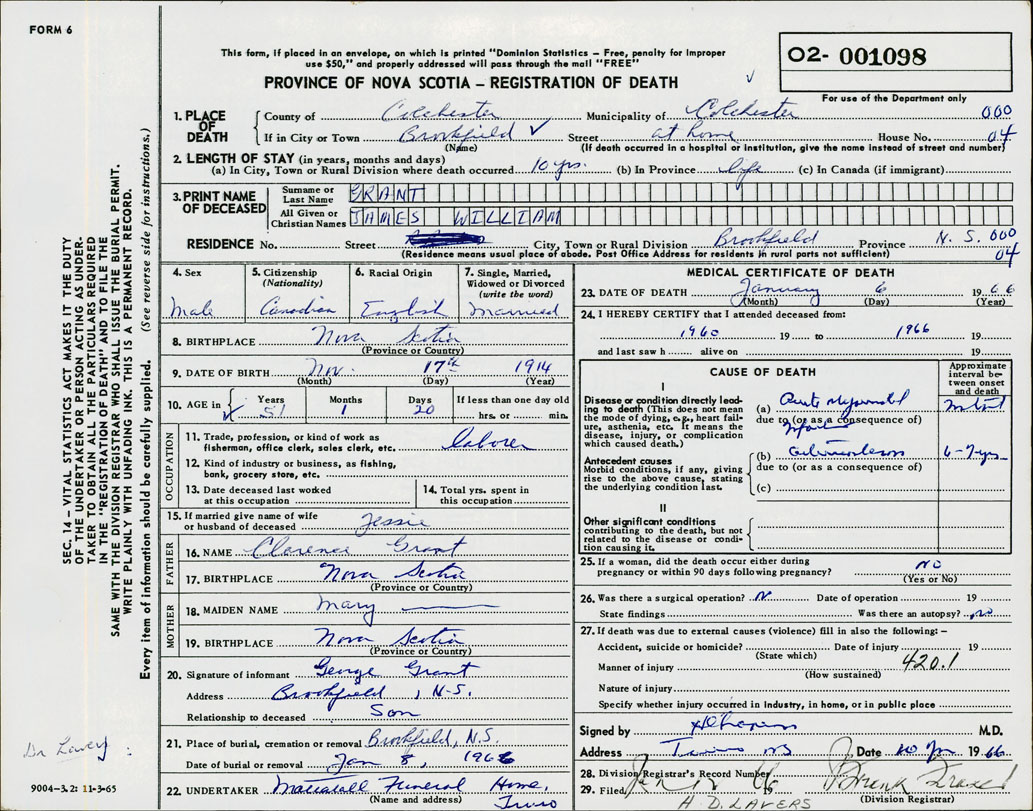 FORM 6
This form, if placed in an envelope, on which is printed "Dominion Statistics – Free, penalty for improper
use $50," and properly addressed will pass through the mail "FREE"
PROVINCE OF NOVA SCOTIA – REGISTRATION OF DEATH
O2- 001098
For use of the Department only
1. PLACE OF DEATH
County of Colchester Municipality of Colchester 000
If in City or Town Brookfield Street at home House No. 04
(Name) (If death occurred in a hospital or institution, give the name instead of street and number)
2. LENGTH OF STAY (in years, months and days)
(a) In City, Town or Rural Division where death occurred 10 yrs. (b) In Province life (c) In Canada (if immigrant)
3. PRINT NAME OF DECEASED
Surname or Last Name GRANT
All Given or Christian Names JAMES WILLIAM
RESIDENCE No. Street City, Town or Rural Division Brookfield Province N.S. 000
(Residence means usual place of abode. Post Office Address for residents in rural parts not sufficient) 04
4. Sex Male
5. Citizenship (Nationality) Canadian
6. Racial Origin English
7. Single, Married, Widowed or Divorced (write the word) Married
8. BIRTHPLACE Nova Scotia
(Province or Country)
9. DATE OF BIRTH Nov. 17th 1914
(Month) (Day) (Year)
10. AGE in Years 51 Months 1 Days 20 If less than one day old hrs. or min.
OCCUPATION
11. Trade, profession, or kind of work as
fisherman, office clerk, sales clerk, etc. laborer
12. Kind of industry or business, as fishing,
bank, grocery store, etc.
13. Date deceased last worked at this occupation
14. Total yrs. spent in this occupation
15. If married give name of wife
or husband of deceased Jessie
FATHER
16. NAME Clarence Grant
17. BIRTHPLACE Nova Scotia
(Province or Country)
MOTHER
18. MAIDEN NAME Mary
19. BIRTHPLACE Nova Scotia
(Province or Country)
20. Signature of informant George Grant
Address Brookfield, N.S.
Relationship to deceased Son
21. Place of burial, cremation or removal Brookfield, N.S.
Date of burial or removal Jan 8, 1966
22. UNDERTAKER Mattatall Funeral Home,
(Name and address) Truro
MEDICAL CERTIFICATE OF DEATH
23. DATE OF DEATH January 6 1966
(Month) (Day) (Year)
24. I HEREBY CERTIFY that I attended deceased from:
1960 19 to 1966 19
and last saw h alive on 19
CAUSE OF DEATH
Approximate interval between onset and death
I
Disease or condition directly leading to death (This does not mean the mode of dying, e.g., heart failure, asthenia, etc. It means the disease, injury, or complication which caused death.)
(a) Acute Myocardial
due to (or as a consequence of)
Infarct
Antecedent causes
Morbid conditions, if any, giving rise to the above cause, stating the underlying condition last.
(b) 6-7 yrs.
due to (or as a consequence of)
(c)
II
Other significant conditions
contributing to the death, but not related to the disease or condition causing it.
25. If a woman, did the death occur either during
pregnancy or within 90 days following pregnancy? NO
(Yes or No)
26. Was there a surgical operation? No Date of operation 19
State findings Was there an autopsy? No
27. If death was due to external causes (violence) fill in also the following: –
Accident, suicide or homicide? Date of injury 19
(State which)
Manner of injury 420.1
(How sustained)
Nature of injury
Specify whether injury occurred in industry, in home, or in public place
Signed by M.D.
Address Truro NS Date 10 Jan 1966
28. Division Registrar's Record Number
29. Filed Jan 66
(Division Registrar)
H. D. LAVERS
SEC. 14 – VITAL STATISTICS ACT MAKES IT THE DUTY
OF THE UNDERTAKER OR PERSON ACTING AS UNDER-
TAKER TO OBTAIN ALL THE PARTICULARS REQUIRED
IN THE "REGISTRATION OF DEATH" AND TO FILE THE
SAME WITH THE DIVISION REGISTRAR WHO SHALL ISSUE THE BURIAL PERMIT.
WRITE PLAINLY WITH UNFADING INK. THIS IS A PERMANENT RECORD.
Every item of information should be carefully supplied. (See reverse side for instructions.)
9004-3.2: 11-3-65